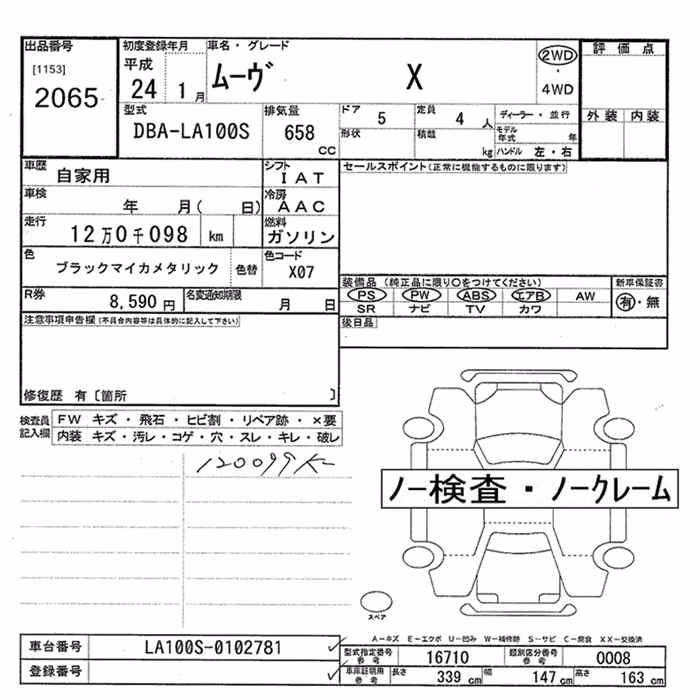 出品番号 初度登録年月 車名・グレード 2WD 評価点
[1153] 平成 ・
2065 24 1月 ムーヴ X 4WD
型式 排気量 ドア 5 定員 4人 ディーラー・並行 外装 内装
DBA-LA100S 658 CC 形状 積載 kg モデル年式 年
ハンドル 左・右
車歴 自家用 シフト IAT セールスポイント(正常に機能するものに限ります)
車検 年 月( 日) 冷房 AAC
走行 12万0千098 km 燃料 ガソリン
色 ブラックマイカメタリック 色替 色コード X07
装備品 (純正品に限り○をつけてください) 新車保証書
R券 8,590円 名変通知期限 月 日 PS PW ABS エアB AW 有・無
SR ナビ TV カワ
注意事項申告欄(不具合内容等は具体的に記入して下さい) 後日品
修復歴 有〔箇所 〕
検査員 FW キズ・飛石・ヒビ割・リペア跡・×要
記入欄 内装 キズ・汚レ・コゲ・穴・スレ・キレ・破レ
120099K-
ノー検査・ノークレーム
スペア
A-キズ E-エクボ U-凹み W-補修跡 S-サビ C-腐食 XX-交換済
車台番号 LA100S-0102781 型式指定番号 参考 16710 類別区分番号 参考 0008
登録番号 車庫証明用 参考 長さ 339cm 幅 147cm 高さ 163cm